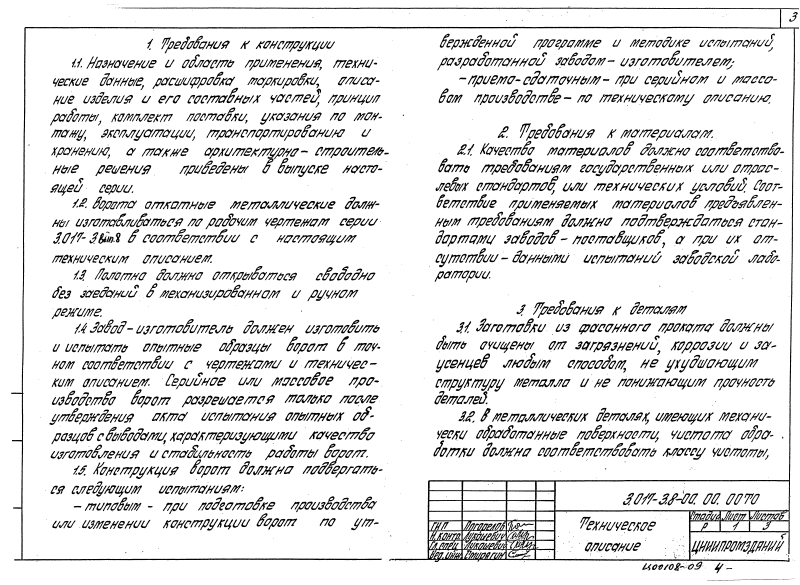 3
1. Требования к конструкции
1.1. Назначение и область применения, техни-
ческие данные, расшифровка маркировки, описа-
ние изделия и его составных частей, принцип
работы, комплект поставки, указания по мон-
тажу, эксплуатации, транспортированию и
хранению, а также архитектурно-строитель-
ные решения приведены в выпуске насто-
ящей серии.
1.2. Ворота откатные металлические долж-
ны изготавливаться по рабочим чертежам серии
3.017-3 вып.8 в соответствии с настоящим
техническим описанием.
1.3. Полотно должно открываться свободно
без заеданий в механизированном и ручном
режиме.
1.4. Завод-изготовитель должен изготовить
и испытать опытные образцы ворот в точ-
ном соответствии с чертежами и техничес-
ким описанием. Серийное или массовое про-
изводство ворот разрешается только после
утверждения акта испытания опытных об-
разцов с выводами, характеризующими качество
изготовления и стабильность работы ворот.
1.5. Конструкция ворот должна подвергать-
ся следующим испытаниям:
- типовым - при подготовке производства
или изменении конструкции ворот по ут-
вержденной программе и методике испытаний,
разработанной заводом-изготовителем;
- приемо-сдаточным - при серийном и массо-
вом производстве - по техническому описанию.
2. Требования к материалам.
2.1. Качество материалов должно соответство-
вать требованиям государственных или отрас-
левых стандартов, или технических условий. Соот-
ветствие применяемых материалов предъявлен-
ным требованиям должно подтверждаться стан-
дартами заводов-поставщиков, а при их от-
сутствии - данными испытаний заводской лабо-
ратории.
3. Требования к деталям
3.1. Заготовки из фасонного проката должны
быть очищены от загрязнений, коррозии и за-
усенцев любым способом, не ухудшающим
структуру металла и не понижающим прочность
деталей.
3.2. В металлических деталях, имеющих механи-
чески обработанные поверхности, чистота обра-
ботки должна соответствовать классу чистоты,
3.017-3.8-00.00.00ТО
ГИП
Н.контр. Лукашевич
Гл.спец. Лукашевич
Вед.инж.
Техническое
описание
Стадия Лист Листов
Р 1 3
ЦНИИПРОМЗДАНИЙ
Ц00108-09 4-